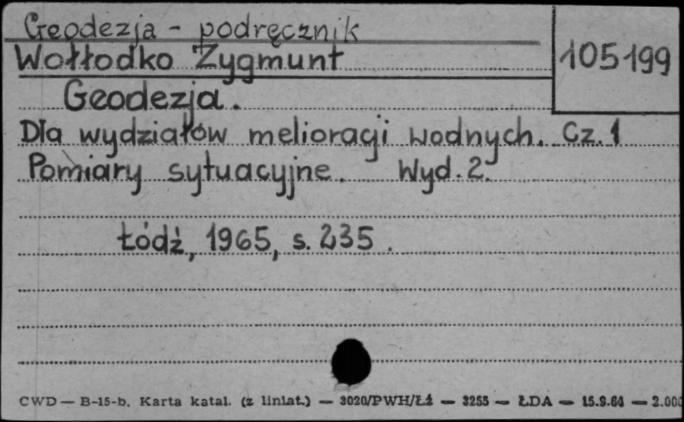 Geodezja - podręcznik
Wołłodko Zygmunt
105199
Geodezja.
Dla wydziałów melioracji wodnych. Cz. 1
Pomiary sytuacyjne. Wyd. 2.
Łódź, 1965, s. 235.
CWD — B-15-b. Karta katal. (z liniat.) — 3020/PWH/Ł4 — 3255 — ŁDA — 15.9.64 — 2.000